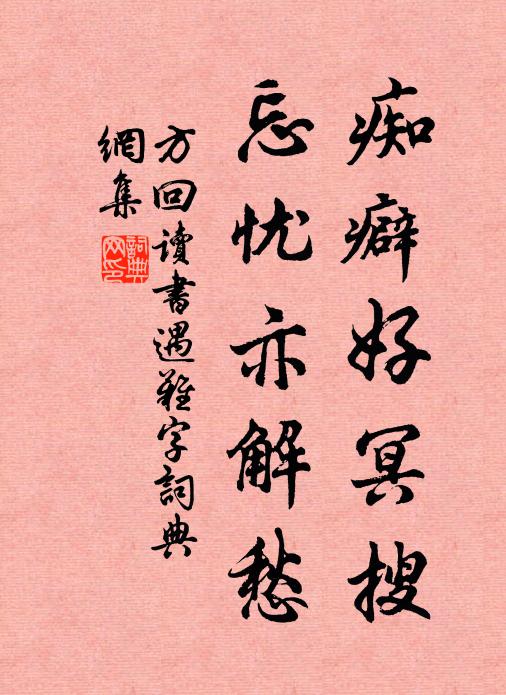 痴癖好冥搜
忘忧亦解愁
方回讀書遇難字詞典
網集
詞典網印